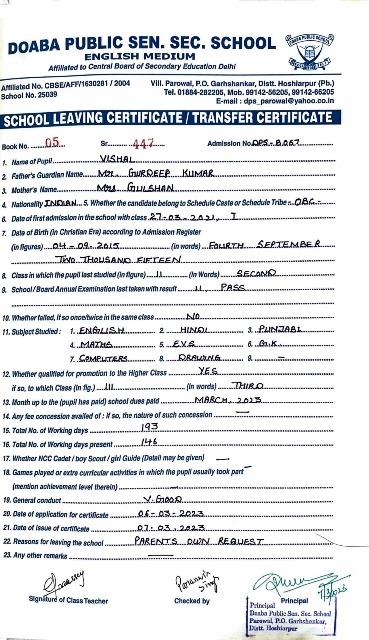 DOABA PUBLIC SEN. SEC. SCHOOL
ENGLISH MEDIUM
Affiliated to Central Board of Secondary Education Delhi
Affiliated No. CBSE/AFF/1630281 / 2004
School No. 25039
Vill. Parowal, P.O. Garhshankar, Distt. Hoshiarpur (Pb.)
Tel. 01884-282205, Mob. 99142-56205, 99142-66205
E-mail : dps_parowal@yahoo.co.in
SCHOOL LEAVING CERTIFICATE / TRANSFER CERTIFICATE
Book No. 05 Sr. 447 Admission No. DPS-B067
1. Name of Pupil VISHAL
2. Father's Guardian Name Mr. GURDEEP KUMAR
3. Mother's Name Mrs GULSHAN
4. Nationality INDIAN 5. Whether the candidate belong to Schedule Caste or Schedule Tribe -OBC-
6. Date of first admission in the school with class 27-03-2021, I
7. Date of Birth (in Christian Era) according to Admission Register
(in figures) 04-09-2015 (in words) FOURTH SEPTEMBER
TWO THOUSAND FIFTEEN
8. Class in which the pupil last studied (in figure) II (in Words) SECOND
9. School / Board Annual Examination last taken with result II, PASS
10. Whether failed, if so once/twice in the same class NO
11. Subject Studied : 1. ENGLISH 2. HINDI 3. PUNJABI
4. MATHS 5. E.V.S 6. G.K
7. COMPUTERS 8. DRAWING 9. -
12. Whether qualified for promotion to the Higher Class YES
if so, to which Class (in fig.) III (in words) THIRD
13. Month up to the (pupil has paid) school dues paid MARCH, 2023
14. Any fee concession availed of : if so, the nature of such concession —
15. Total No. of Working days 193
16. Total No. of Working days present 146
17. Whether NCC Cadet / boy Scout / girl Guide (Detail may be given) —
18. Games played or extra curricular activities in which the pupil usually took part —
(mention achievement level therein) —
19. General conduct V. GOOD
20. Date of application for certificate 06-03-2023
21. Date of issue of certificate 07-03-2023
22. Reasons for leaving the school PARENTS OWN REQUEST
23. Any other remarks —
Signature of Class Teacher Checked by Principal
Principal
Doaba Public Sen. Sec. School
Parowal, P.O. Garhshankar,
Distt. Hoshiarpur